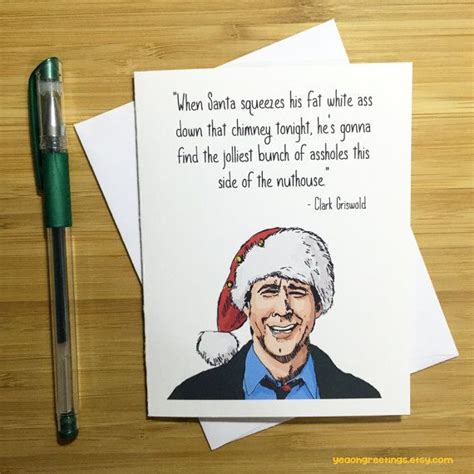 "When Santa squeezes his fat white ass
down that chimney tonight, he's gonna
find the jolliest bunch of assholes this
side of the nuthouse."
- Clark Griswold
yeaohgreetings.etsy.com